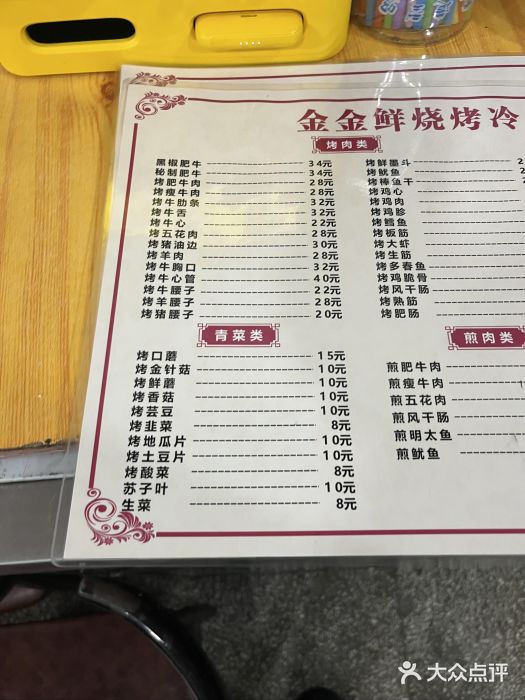 金金鲜烧烤冷
烤肉类
黑椒肥牛 34元
秘制肥牛 34元
烤肥牛肉 28元
烤瘦牛肉 28元
烤牛肋条 32元
烤牛舌 32元
烤牛心 22元
烤五花肉 28元
烤猪油边 30元
烤羊肉 28元
烤牛胸口 32元
烤牛心管 40元
烤牛腰子 22元
烤羊腰子 28元
烤猪腰子 20元
烤鲜墨斗
烤鱿鱼
烤棒鱼干
烤鸡心
烤鸡肉
烤鸡胗
烤鳕鱼
烤板筋
烤大虾
烤生筋
烤多春鱼
烤鸡脆骨
烤风干肠
烤熟筋
烤肥肠
青菜类
烤口蘑 15元
烤金针菇 10元
烤鲜蘑 10元
烤香菇 10元
烤芸豆 10元
烤韭菜 8元
烤地瓜片 10元
烤土豆片 10元
烤酸菜 8元
苏子叶 10元
生菜 8元
煎肉类
煎肥牛肉
煎瘦牛肉
煎五花肉
煎风干肠
煎明太鱼
煎鱿鱼
大众点评